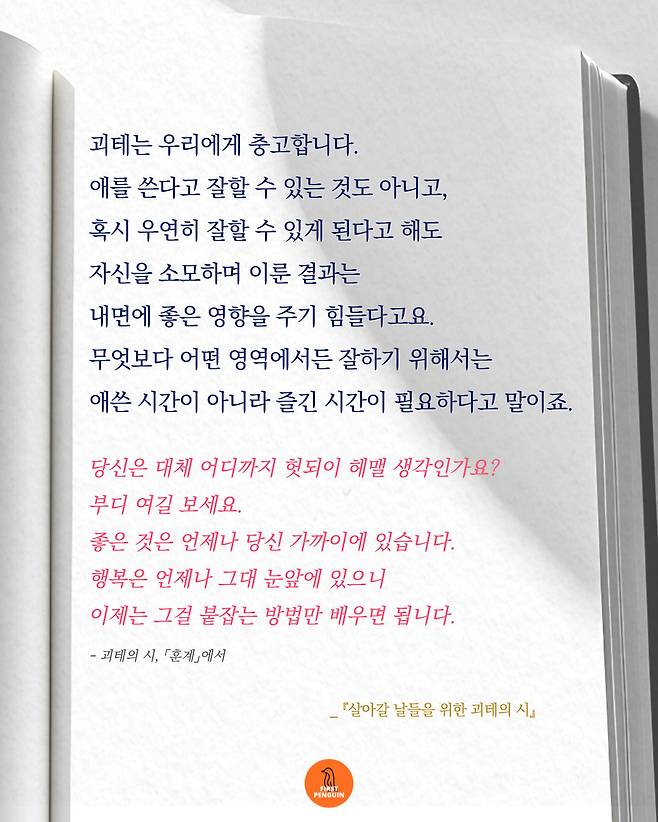 괴테는 우리에게 충고합니다.
애를 쓴다고 잘할 수 있는 것도 아니고,
혹시 우연히 잘할 수 있게 된다고 해도
자신을 소모하며 이룬 결과는
내면에 좋은 영향을 주기 힘들다고요.
무엇보다 어떤 영역에서든 잘하기 위해서는
애쓴 시간이 아니라 즐긴 시간이 필요하다고 말이죠.
당신은 대체 어디까지 헛되이 헤맬 생각인가요?
부디 여길 보세요.
좋은 것은 언제나 당신 가까이에 있습니다.
행복은 언제나 그대 눈앞에 있으니
이제는 그걸 붙잡는 방법만 배우면 됩니다.
- 괴테의 시, 「훈계」에서
_『살아갈 날들을 위한 괴테의 시』
FIRST
PENGUIN